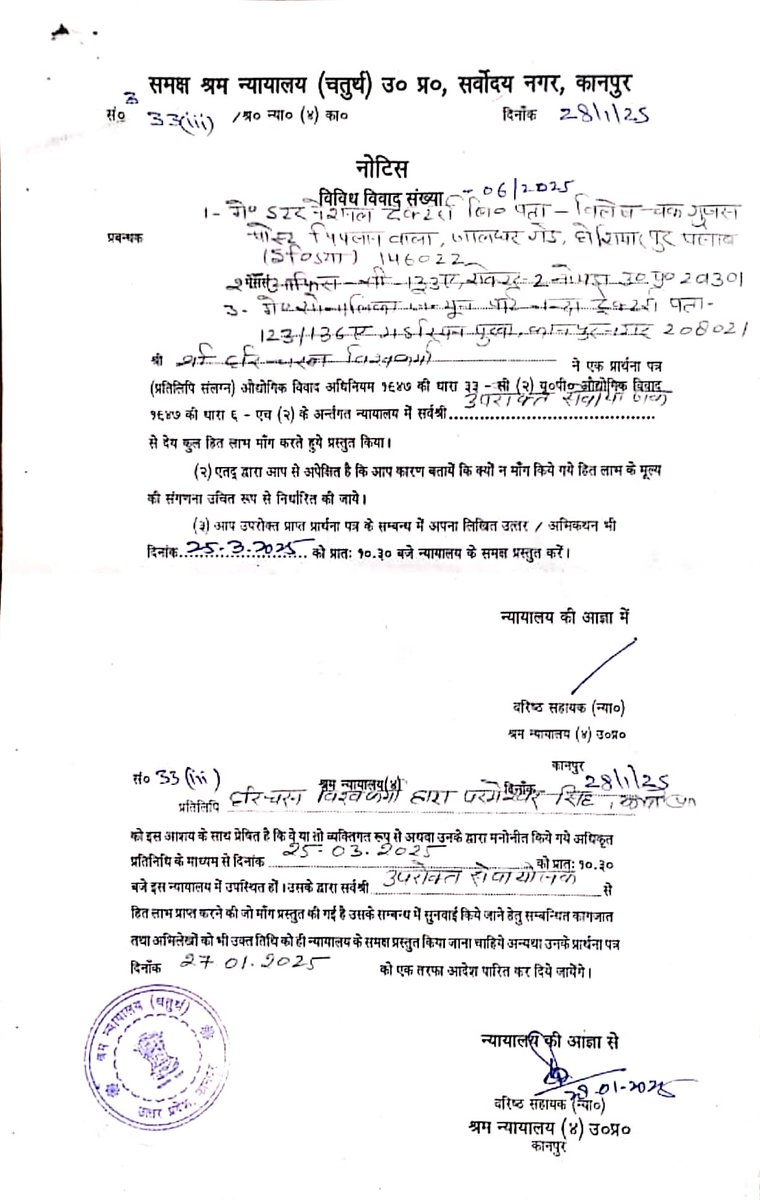 समक्ष श्रम न्यायालय (चतुर्थ) उ० प्र०, सर्वोदय नगर, कानपुर
सं० 33(iii) /श्र० न्या० (४) का० दिनाँक 28/1/25
नोटिस
विविध विवाद संख्या - 06/2025
1- मे० इंटरनेशनल ट्रैक्टर्स लि० पता - विलेज - चक गुजरा
प्रबन्धक पोस्ट पिपलान वाला, जालंधर रोड, होशियारपुर पंजाब
146022
नोएडा उ० प्र० 201301
3- पता-
कानपुर नगर 208021
श्री श्री हरि चरन विश्वकर्मा ने एक प्रार्थना पत्र
(प्रतिलिपि संलग्न) औद्योगिक विवाद अधिनियम १९४७ की धारा ३३ - सी (२) यू०पी० औद्योगिक विवाद
१९४७ की धारा ६ - एच (२) के अर्न्तगत न्यायालय में सर्वश्री उपरोक्त सेवायोजक
से देय कुल हित लाभ माँग करते हुये प्रस्तुत किया।
(२) एतद् द्वारा आप से अपेसित है कि आप कारण बतायें कि क्यों न माँग किये गये हित लाभ के मूल्य
की संगणना उचित रूप से निर्धारित की जाये।
(३) आप उपरोक्त प्राप्त प्रार्थना पत्र के सम्बन्ध में अपना लिखित उत्तर / अभिकथन भी
दिनांक 25-3-2025 को प्रातः १०.३० बजे न्यायालय के समक्ष प्रस्तुत करें।
न्यायालय की आज्ञा में
वरिष्ठ सहायक (न्या०)
श्रम न्यायालय (४) उ०प्र०
कानपुर
सं० 33(iii) श्रम न्यायालय(४) दिनाँक 28/1/25
प्रतिलिपि हरि चरन विश्वकर्मा द्वारा परमेश्वर सिंह,
को इस आशय के साथ प्रेषित है कि वे या तो व्यक्तिगत रूप से अथवा उनके द्वारा मनोनीत किये गये अधिकृत
प्रतिनिधि के माध्यम से दिनांक 25-03-2025 को प्रातः १०.३०
बजे इस न्यायालय में उपस्थित हों। उसके द्वारा सर्वश्री उपरोक्त सेवायोजक से
हित लाभ प्राप्त करने की जो माँग प्रस्तुत की गई है उसके सम्बन्ध में सुनवाई किये जाने हेतु सम्बन्धित कागजात
तथा अभिलेखों को भी उक्त तिथि को ही न्यायालय के समक्ष प्रस्तुत किया जाना चाहिये अन्यथा उनके प्रार्थना पत्र
दिनाँक 27 01.2025 को एक तरफा आदेश पारित कर दिये जायेंगे।
श्रम न्यायालय (चतुर्थ)
उत्तर प्रदेश, कानपुर
न्यायालय की आज्ञा से
28-01-2025
वरिष्ठ सहायक (न्या०)
श्रम न्यायालय (४) उ०प्र०
कानपुर